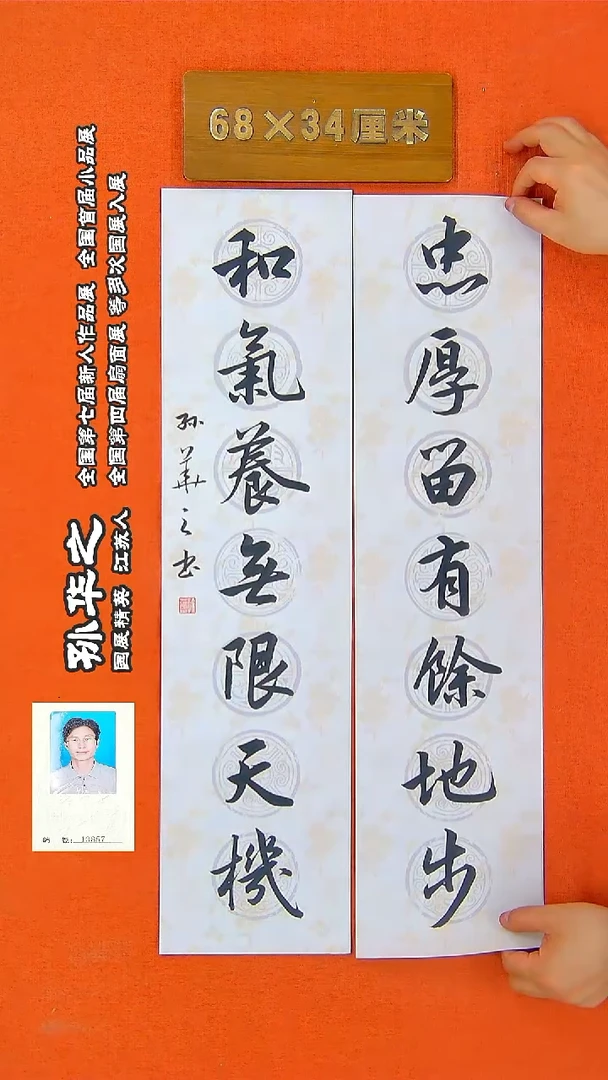 68×34厘米
忠厚留有餘地步
和氣養無限天機
孙華之书
孙华之
全国第七届新人作品展 全国首届小品展
国展精英 江苏人 全国第四届扇面展 等多次国展入展